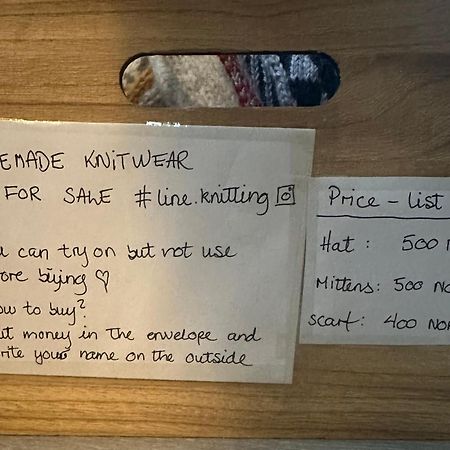 EMADE KNITWEAR
FOR SALE #line.knitting
u can try on but not use
ore buying ♡
ow to buy?
ut money in the envelope and
rite your name on the outside
Price - list
Hat : 500 N
Mittens: 500 NO
scarf: 400 NO